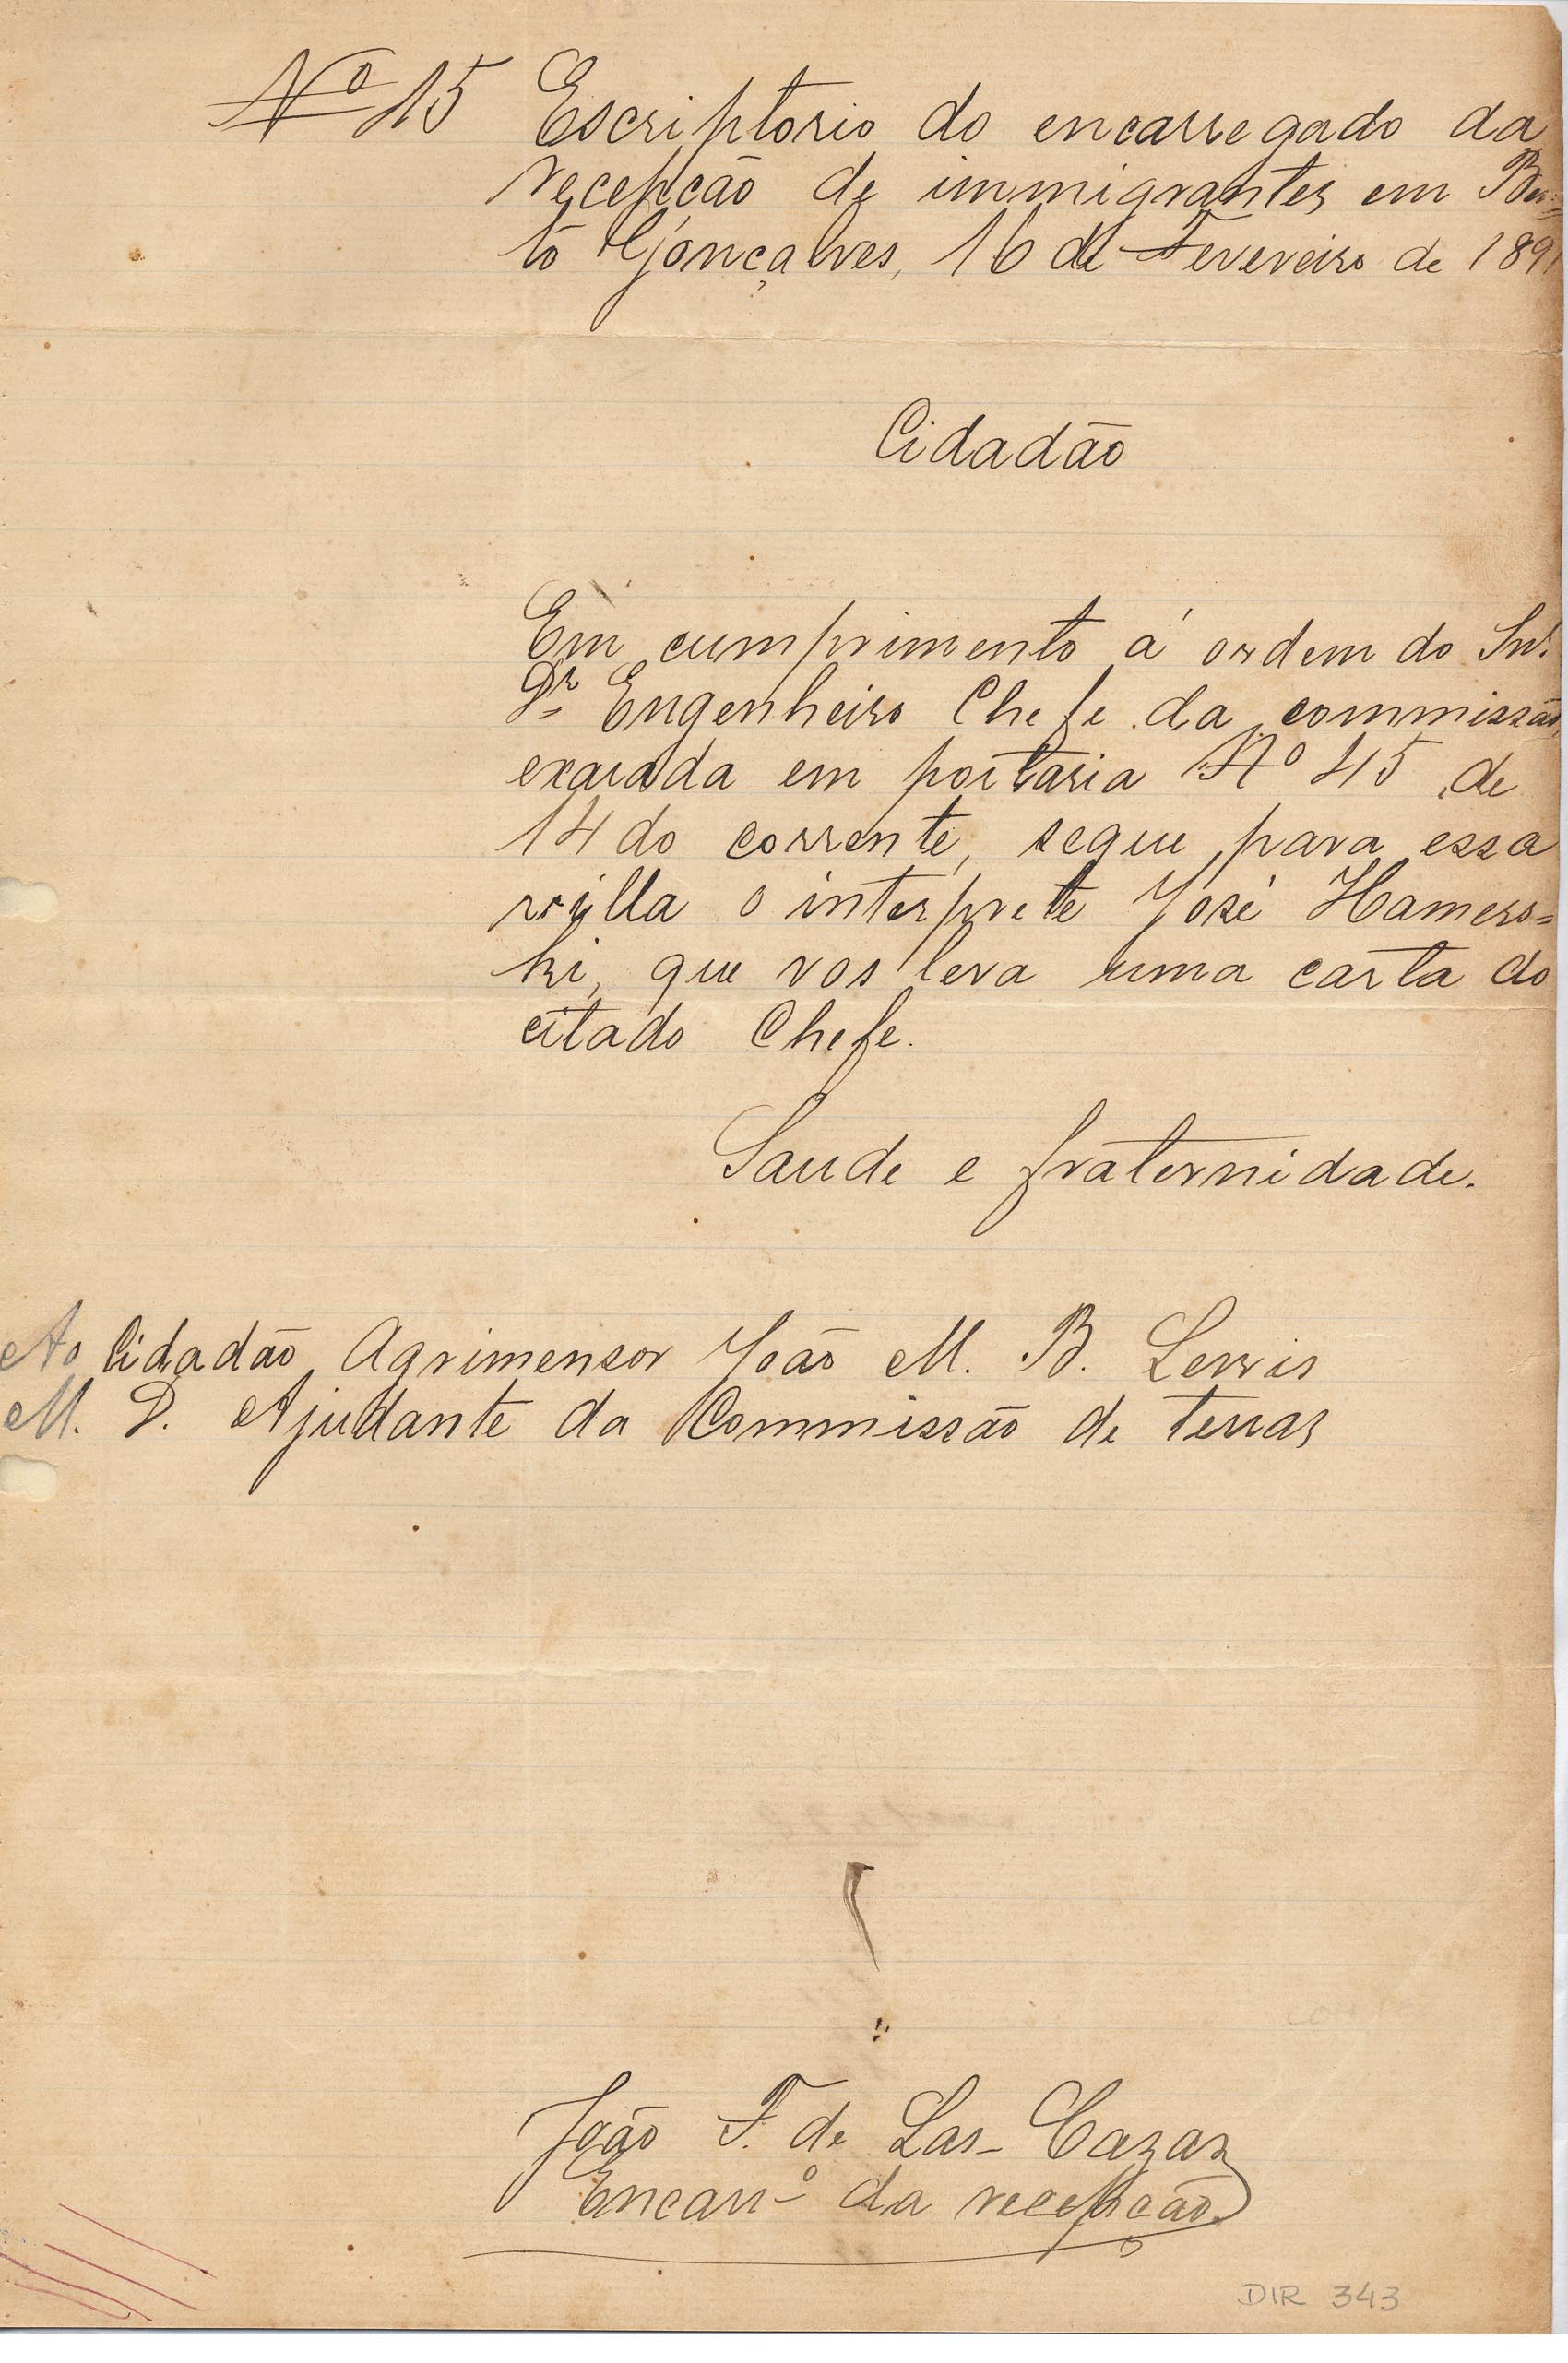 Nº 15 Escriptorio do encarregado da
recepção de immigrantes em Ben=
to Gonçalves, 16 de Fevereiro de 1891
Cidadão
Em cumprimento á ordem do Snr.
Dr Engenheiro Chefe da commissão,
exarada em portaria Nº 45 de
14 do corrente, segue para essa
villa o interprete José Hamers=
ki, que vos leva uma carta do
citado Chefe.
Saude e fraternidade.
Ao Cidadão Agrimensor João M. B. Lewis
M. D. Ajudante da Commissão de terras
João F. de Las-Cazas
Encarrº da recepção
DIR 343